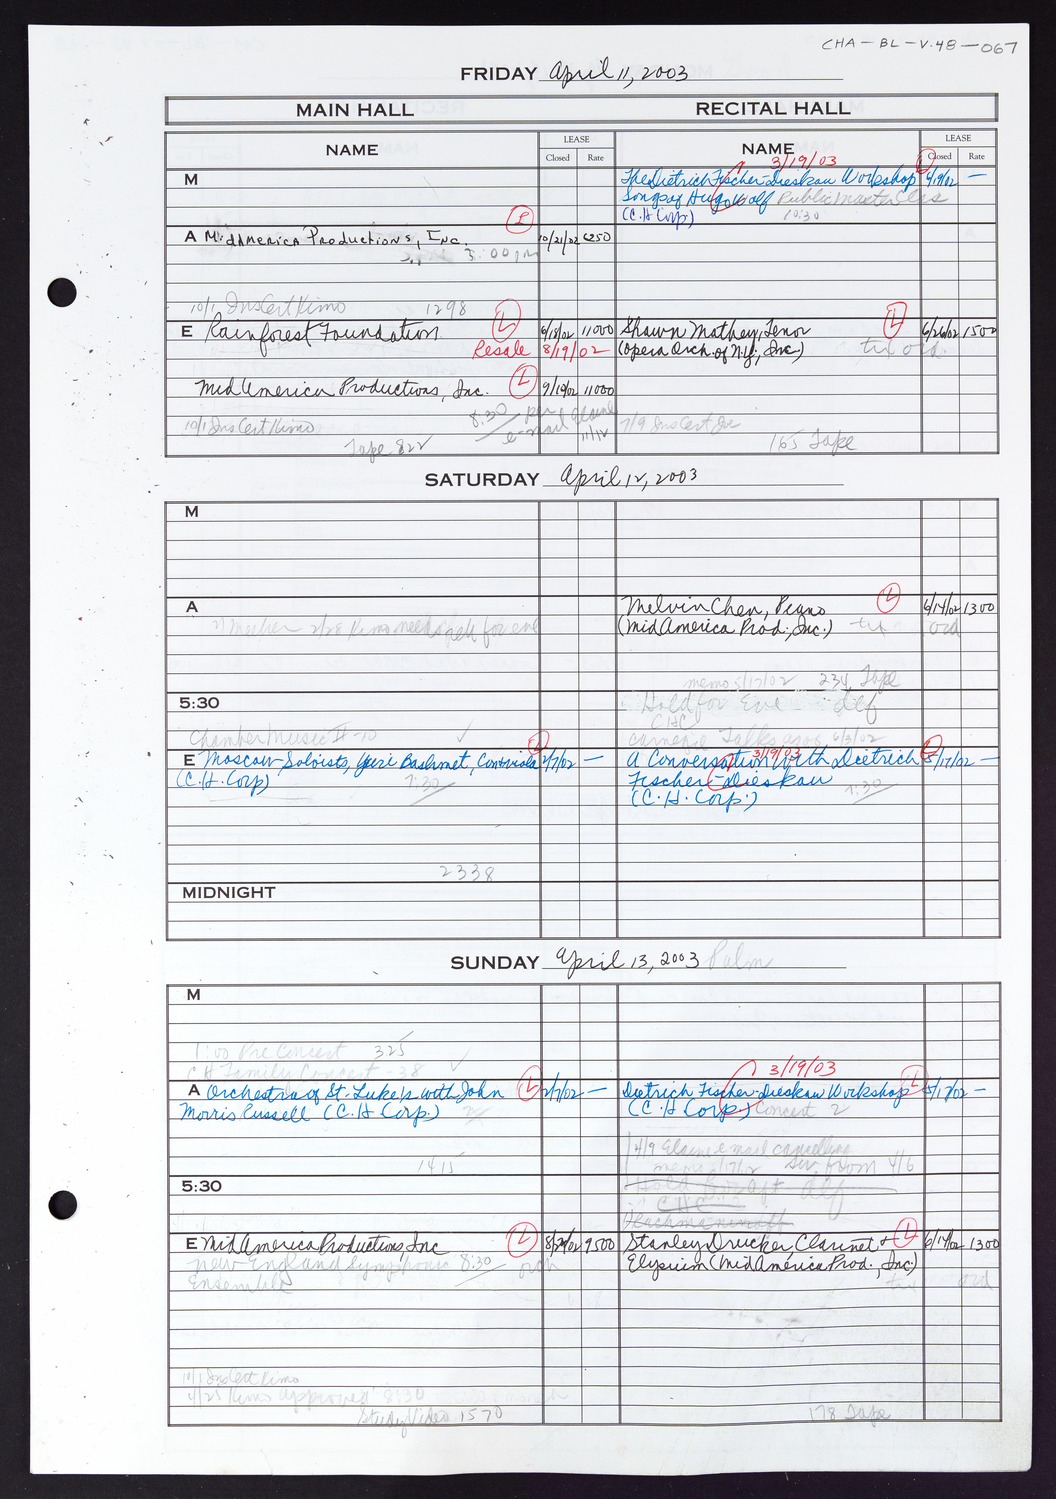 CHA-BL-V.48-067
FRIDAY April 11, 2003
MAIN HALL RECITAL HALL
NAME LEASE Closed Rate NAME LEASE Closed Rate
3/19/03
M
The Dietrich Fischer-Dieskau Workshop L 4/19/02 —
Songs of Hugo Wolf Public Master Class
(C.H Corp) 10:30
L
A MidAmerica Productions, Inc. 10/21/02 6250
3:00 pm
10/1 Ins Cert Kimo 1298
E Rainforest Foundation L 6/18/02 11000
Resale 8/19/02
Shawn Mathey, Tenor L 6/26/02 1500
(Opera Orch. of N.Y., Inc.) tix ord.
MidAmerica Productions, Inc. L 9/19/02 11000
8:30 per Elaine
e-mail 11/12
10/1 Ins Cert Kimo
Tape 822
7/9 Ins Cert Joe
165 Tape
SATURDAY April 12, 2003
M
A
Melvin Chen, Piano L 6/14/02 1300
(MidAmerica Prod., Inc.) tix ord
2/28 Kimo needs for eve
memo 5/17/02 234 Tape
5:30
Hold for Eve def
CHC
Chamber Music II-10 ✓
Carnegie Talks 6/3/02
E Moscow Soloists, Yuri Bashmet, Cond/viola L 2/7/02 —
(C.H. Corp) 7:30
3/19/03
A Conversation with Dietrich L 5/17/02 —
Fischer-Dieskau
(C.H. Corp.) 7:30
2338
MIDNIGHT
SUNDAY April 13, 2003 Palm
M
1:00 Pre Concert 325
CH Family Concert -38 ✓
A Orchestra of St. Luke's with John L 2/7/02 —
Morris Russell (C.H Corp.)
3/19/03
Dietrich Fischer-Dieskau Workshop L 5/17/02 —
(C.H Corp) Concert 2
1415
4/9 Elaine e mail cancelling
memo 5/17/02 from 4/6
5:30
Hold for Aft def
CHC
Rachmaninoff
E MidAmerica Productions, Inc L 8/29/02 9500
New England Symphonic 8:30 orch
Ensemble
Stanley Drucker, Clarinet + L 6/14/02 1300
Elysium (MidAmerica Prod., Inc.)
tix ord
10/1 Ins Cert Kimo
4/25 Kimo approved 8:30
Study Video 1570
178 Tape